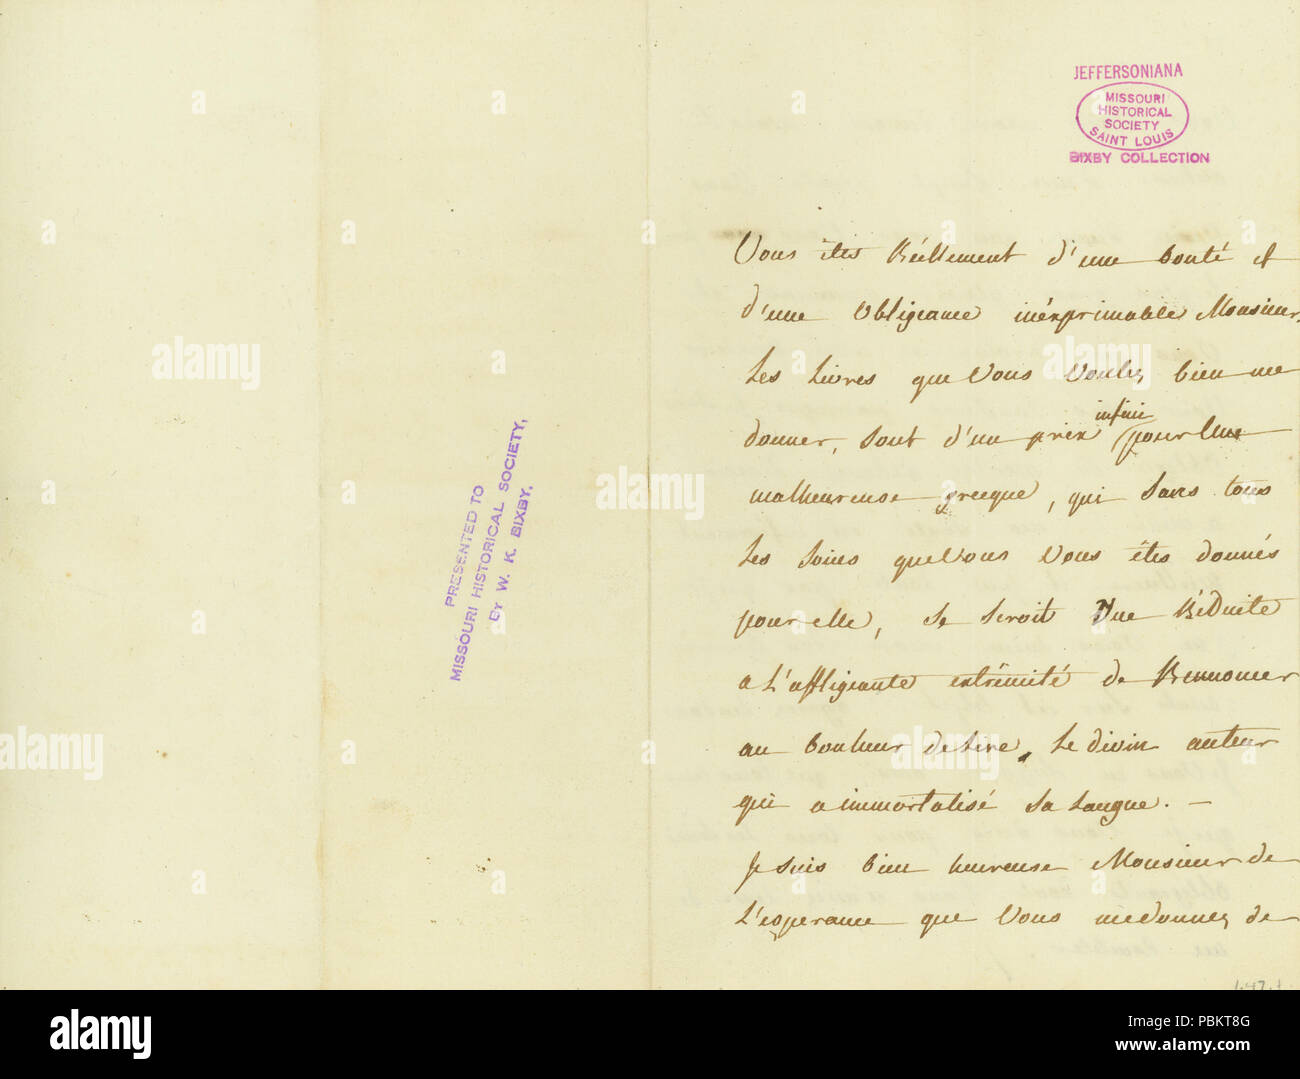 JEFFERSONIANA
MISSOURI
HISTORICAL
SOCIETY
SAINT LOUIS
BIXBY COLLECTION
PRESENTED TO
MISSOURI HISTORICAL SOCIETY,
BY W. K. BIXBY.
Vous êtes Réellement d'une bonté et
d'une obligeance inéxprimable Monsieur.
Les Livres que Vous Voulez bien me
donner, sont d'un prix infini pour Une
malheureuse grecque, qui sans tous
Les soins que Vous Vous êtes donnés
pour elle, se seroit Vue Réduite
a L'affligeante extrémité de Rennoncer
au bonheur de Lire, Le divin auteur
qui a immortalisé sa Langue. —
Je suis bien heureuse Monsieur de
L'esperance que Vous me donnez de
a alamy
alamy
www.alamy.com
Image ID: PBKT8G